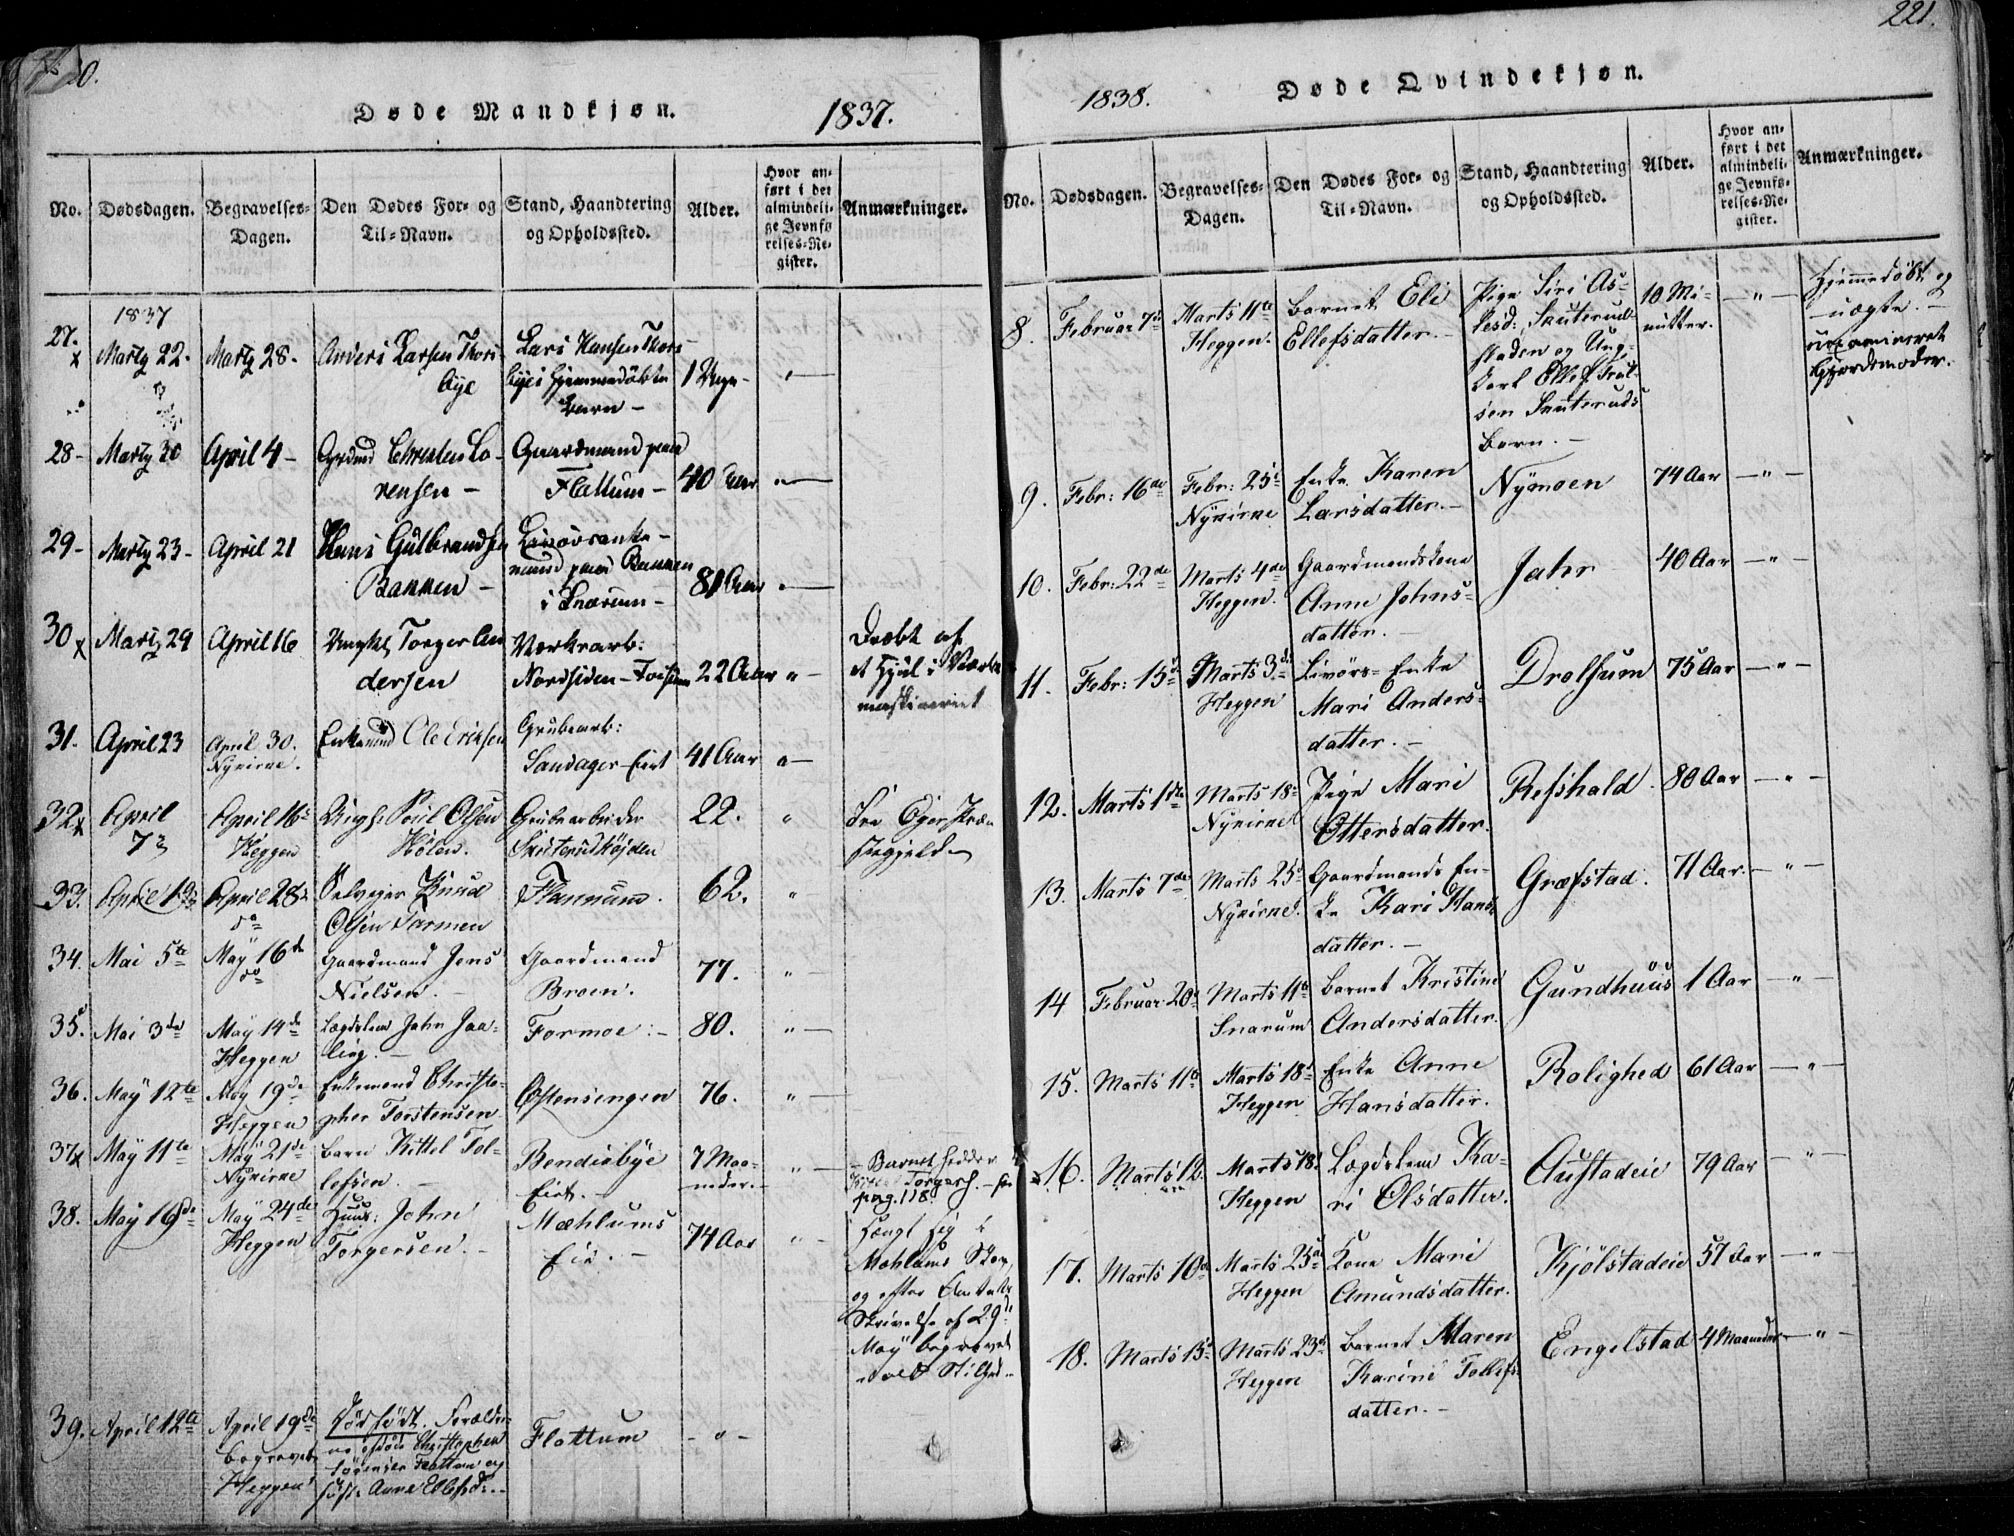 220.
Døde Mandkjøn.
1837.
No.
Dødsdagen.
Begravelses-
Dagen.
Den Dødes For- og
Til-Navn.
Stand, Haandtering
og Opholdssted.
Alder.
Hvor an-
ført i det
almindeli-
ge Jevnfø-
relses-Re-
gister.
Anmærkninger.
1837
27.
x
Marty 22.
Marty 28.
Anders Larsen Thors
bye
Lars Hansen Thors-
byes hjemmedøbte
Barn -
1 Uge -
"
28-
Marty 30
April 4 -
Grdmd Christen Lo-
rensen -
Gaardmand paa
Flattum -
40 Aar
"
29-
Marty 23-
April 21
Hans Gulbrandsen
Bakken -
Livøreenke-
mand paa Bakken
i Snarum -
81 Aar
"
30
x
Marty 29
April 16
Ungkl Torger An
dersen
Værksarb:
Nordsiden - Fossum
22 Aar
"
Dræbt af
et Hjul i Værks
maskineriet
31.
April 23
April 30.
Nykirke.
Enkemd Ole Eriksen
Grubearb:
Sandager-Eiet
41 Aar
"
32
x
April
7de
April 16
Heggen
Ungk. Poul Olsen
Hølen.
Grubearbeider
Skuterudhøjden
22.
"
Fra Eger Præ-
stegjeld
33.
April 19
April 28
do
Selveier Knud
Olsen Tarmen
Flannum.
62.
"
34.
Mai 5te
May 16d
do
Gaardmand Jens
Nielsen.
Gaardmand
Broen.
77.
"
35.
Mai 3de
May 14de
Heggen
Lægdslem John Jaa-
ling.
Formoe.
80.
"
36.
May 12te
May 19de
Heggen
Enkemand Christo-
pher Torstensen
Østensengen
76.
"
37
x
May 11te
May 21de
Nykirke
Barn Kittel Tol-
lefsen.
Bendiebye
Eiet.
7 Maa-
neder.
"
- Barnet hedder
Kittel Torgers. - see
pag. 118.
38.
May 16de
May 24de
Heggen
Huus: John
Torgersen.
Mæhlums
Eie.
74 Aar
"
Hængt sig i
Mæhlums Skov,
og efter Amtets
Skrivelse af 29de
May begravet
i al Stilhed.
39.
April 12te
April 19de
begravet
Heggen
Dødfødt. Forældre-
ne ere døde Christophen
Sørensen Flattum og
Hst. Anne Ellefsd:
Flattum
- " -
221.
1838.
Døde Qvindekjøn.
No.
Dødsdagen.
Begravelses-
Dagen.
Den Dødes For- og
Til-Navn.
Stand, Haandtering
og Opholdssted.
Alder.
Hvor an-
ført i det
almindeli-
ge Jevnfø-
relses-Re-
gister.
Anmærkninger.
8.
Februar 7de
Marts 11te
Heggen.
Barnet Eli
Ellefsdatter.
Pige Siri As-
lesd: Skuterud-
fladen og Ung-
karl Ellef Trul-
sen Skuteruds
Barn.
10 Mi-
nutter.
"
Hjemmedøbt og
uægte. -
uexamineret
Gjordemoder.
9.
Febr: 16de
Febr: 25de
Nykirke
Enke Karen
Larsdatter.
Nymoen
74 Aar
"
10.
Febr: 22de
Marts 4de
Heggen.
Gaardmandskone
Anne Johns-
datter.
Jahr
40 Aar
"
11.
Febr: 15de
Marts 3de
Heggen
Livørs-Enke
Mari Anders-
datter.
Drolsum
75 Aar
"
12.
Marts 1ste
Marts 18de
Nykirke
Pige Mari
Ottersdatter.
Refshald
80 Aar
"
13.
Marts 7de
Marts 25de
Nykirke.
Gaardmands En-
ke Kari Hans-
datter.
Græfstad.
71 Aar.
"
14
Februar 20de
Marts 11te
Snarum
Barnet Kristine
Andersdatter.
Gundhuus
1 Aar
"
15.
Marts 11te
Marts 18de
Heggen
Enke Anne
Hansdatter.
Rolighed
61 Aar
"
16.
Marts 12.
Marts 18de
Heggen
Lægdslem Ka-
ri Olsdatter.
Austadeie
79 Aar
"
17.
Marts 10de
Marts 25de
Heggen
Kone Mari
Amundsdatter.
Kjølstadeie
57 Aar
"
18.
Marts 15de
Marts 23de
Heggen
Barnet Maren
Karine Tollefs-
datter.
Engelstad
4 Maaneder
"